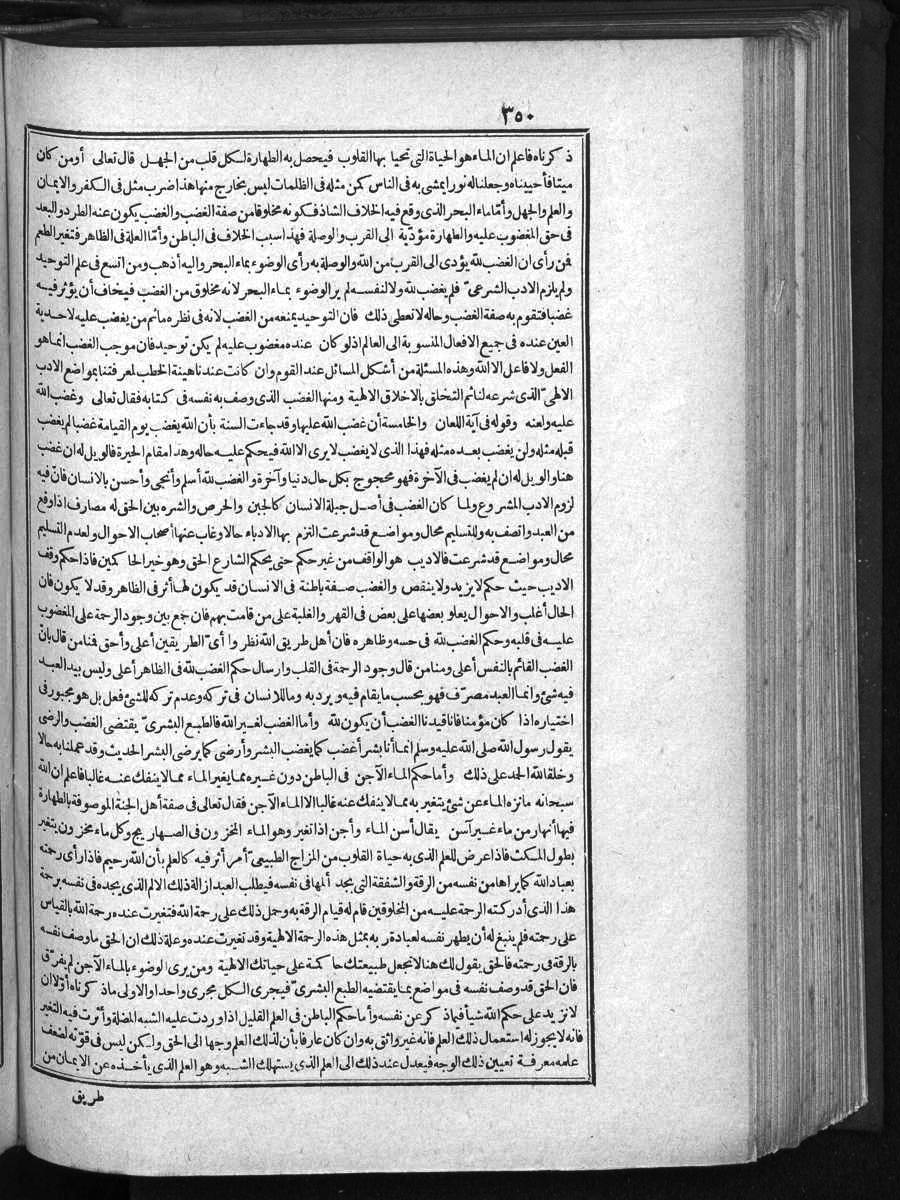 ٣٥٠
ذكرناه فاعلم ان الماء هو الحياة التى تحيا بها القلوب فيحصل به الطهارة لكل قلب من الجهل قال تعالى أومن كان
ميتا فأحييناه وجعلنا له نورا يمشى به فى الناس كمن مثله فى الظلمات ليس بخارج منها هذا ضرب مثل فى الكفر والايمان
والعلم والجهل وأما ماء البحر الذى وقع فيه الخلاف الشاذ فكونه مخلوقا من صفة الغضب والغضب يكون عنه الطرد والبعد
فى حق المغضوب عليه والطهارة مؤدّية الى القرب والوصلة فهذا سبب الخلاف فى الباطن وأمّا العلة فى الظاهر فتغير الطعم
فمن رأى ان الغضب لله يؤدى الى القرب من الله والوصلة به رأى الوضوء بماء البحر واليه أذهب ومن اتسع فى علم التوحيد
ولم يلزم الادب الشرعىّ فلم يغضب لله ولا لنفسه لم ير الوضوء بماء البحر لانه مخلوق من الغضب فيخاف أن يؤثر فيه
غضبا فتقوم به صفة الغضب وحاله لا تعطى ذلك فان التوحيد يمنعه من الغضب لانه فى نظره ما ثم من يغضب عليه لاحدية
العين عنده فى جميع الافعال المنسوبة الى العالم اذ لو كان عنده مغضوب عليه لم يكن توحيد فان موجب الغضب انما هو
الفعل ولا فاعل الا الله وهذه المسئلة من أشكل المسائل عند القوم وان كانت عندنا هينة الخطب لمعرفتنا بمواضع الادب
الالهىّ الذى شرعه لنا ثم التخلق بالاخلاق الالهية ومنها الغضب الذى وصف به نفسه فى كتابه فقال تعالى وغضب الله
عليه ولعنه وقوله فى آية اللعان والخامسة أن غضب الله عليها وقد جاءت السنة بأن الله يغضب يوم القيامة غضبا لم يغضب
قبله مثله ولن يغضب بعده مثله فهذا الذى لا يغضب لا يرى الا الله فيحكم عليه حاله وهذا مقام الحيرة فالويل له ان غضب
هنا والويل له ان لم يغضب فى الآخرة فهو محجوج بكل حال دنيا وآخرة والغضب لله أسلم وأنجى وأحسن بالانسان فانّ فيه
لزوم الادب المشروع ولما كان الغضب فى أصل جبلة الانسان كالجبن والحرص والشره بين الحق له مصارف اذا وقع
من العبد واتصف به وللتسليم محال ومواضع قد شرعت التزم بها الادباء حالا وغاب عنها أصحاب الاحوال ولعدم التسليم
محال ومواضع قد شرعت فالاديب هو الواقف من غير حكم حتى يحكم الشارع الحق وهو خير الحاكمين فاذا حكم وقف
الاديب حيث حكم لا يزيد ولا ينقص والغضب صفة باطنة فى الانسان قد يكون لها أثر فى الظاهر وقد لا يكون فان
الحال أغلب والاحوال يعلو بعضها على بعض فى القهر والغلبة على من قامت بهم فان جمع بين وجود الرحمة على المغضوب
عليه فى قلبه وحكم الغضب لله فى حسه وظاهره فان أهل طريق الله نظروا أىّ الطريقين أعلى وأحق فمنا من قال بانّ
الغضب القائم بالنفس أعلى ومنا من قال وجود الرحمة فى القلب وارسال حكم الغضب لله فى الظاهر أعلى وليس بيد العبد
فيه شئ وانما العبد مصرّف فهو بحسب ما يقام فيه ويرد به وما للانسان فى تركه وعدم تركه للشئ فعل بل هو مجبور فى
اختياره اذا كان مؤمنا فانا قيدنا الغضب أن يكون لله وأما الغضب لغير الله فالطبع البشرىّ يقتضى الغضب والرضى
يقول رسول الله صلى الله عليه وسلم انما أنا بشر أغضب كما يغضب البشر وأرضى كما يرضى البشر الحديث وقد عملنا به حالا
وخلقا لله الحمد على ذلك وأما حكم الماء الآجن فى الباطن دون غيره مما يغير الماء مما لا ينفك عنه غالبا فاعلم ان الله
سبحانه ما نزه الماء عن شئ يتغير به مما لا ينفك عنه غالبا الا الماء الآجن فقال تعالى فى صفة أهل الجنة الموصوفة بالطهارة
فيها أنهار من ماء غير آسن يقال أسن الماء وأجن اذا تغير وهو الماء المخزون فى الصهاريج وكل ماء مخزون يتغير
بطول المكث فاذا عرض للعلم الذى به حياة القلوب من المزاج الطبيعىّ أمر أثر فيه كالعلم بأن الله رحيم فاذا رأى رحمته
بعباد الله كما يراها من نفسه من الرقة والشفقة التى يجد ألمها فى نفسه فيطلب العبد ازالة ذلك الالم الذى يجده فى نفسه برحمة
هذا الذى أدركته الرحمة عليه من المخلوقين قام له قيام الرقة به وحمل ذلك على رحمة الله فتغيرت عنده رحمة الله بالقياس
على رحمته فلم ينبغ له أن يطهر نفسه لعبادة ربه بمثل هذه الرحمة الالهية وقد تغيرت عنده وعلة ذلك ان الحق ما وصف نفسه
بالرقة فى رحمته فالحق يقول لك هنا لا تجعل طبيعتك حاكمة على حياتك الالهية ومن يرى الوضوء بالماء الآجن لم يفرّق
فان الحق قد وصف نفسه فى مواضع بما يقتضيه الطبع البشرىّ فيجرى الكل مجرى واحدا والاولى ما ذكرناه أوّلا ان
لا نزيد على حكم الله شيأ فيما ذكر عن نفسه وأما حكم الباطن فى العلم القليل اذا وردت عليه الشبه المضلة وأثرت فيه التغير
فانه لا يجوز له استعمال ذلك العلم فانه غير واثق به وان كان عارفا بأن لذلك العلم وجها الى الحق ولكن ليس فى قوّته لضعف
علمه معرفة تعيين ذلك الوجه فيعدل عند ذلك الى العلم الذى يستهلك الشبه وهو العلم الذى يأخذه عن الايمان من
طريق